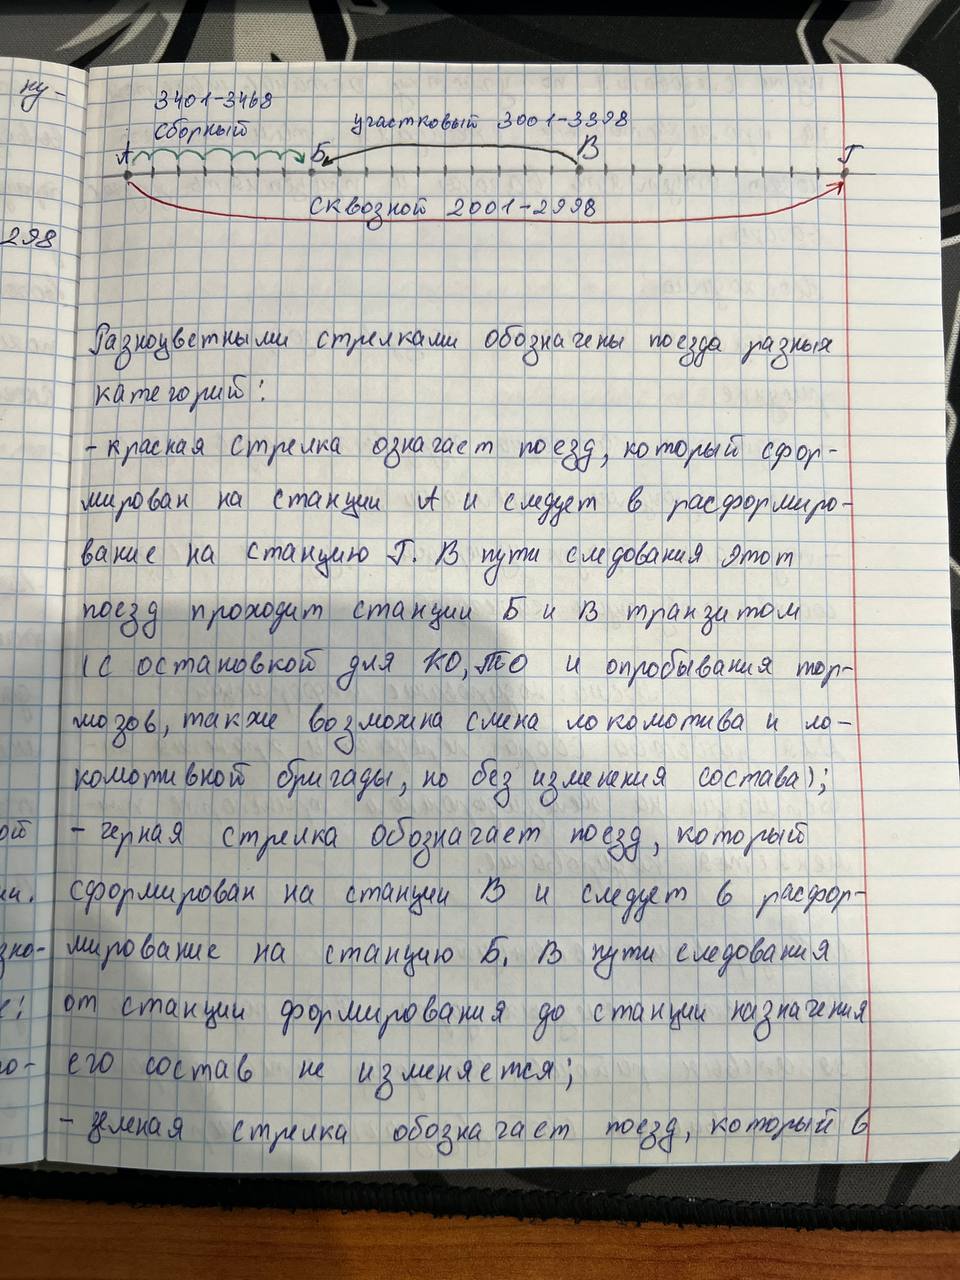 ну-
298
ой
ии.
зно-
е:
ро-
3401-3468
сборный
участковый 3001-3398
А Б В Г
сквозной 2001-2998
Разноцветными стрелками обозначены поезда разных
категорий:
- красная стрелка означает поезд, который сфор-
мирован на станции А и следует в расформиро-
вание на станцию Г. В пути следования этот
поезд проходит станции Б и В транзитом
(с остановкой для КО, ТО и опробывания тор-
мозов, также возможна смена локомотива и ло-
комотивной бригады, но без изменения состава);
- черная стрелка обозначает поезд, который
сформирован на станции В и следует в расфор-
мирование на станцию Б. В пути следования
от станции формирования до станции назначения
его состав не изменяется;
- зеленая стрелка обозначает поезд, который в